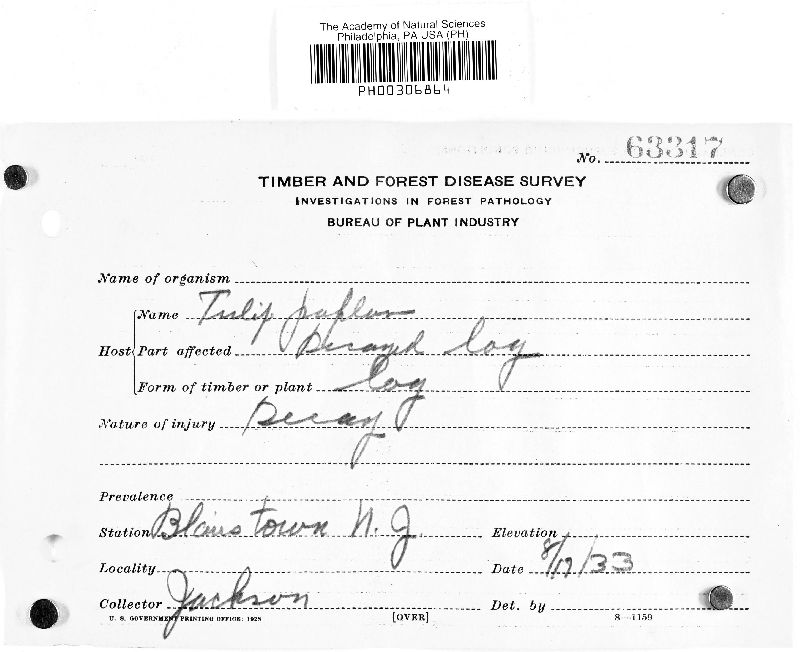 The Academy of Natural Sciences
Philadelphia, PA USA (PH)
PH00306864
No. 63317
TIMBER AND FOREST DISEASE SURVEY
INVESTIGATIONS IN FOREST PATHOLOGY
BUREAU OF PLANT INDUSTRY
Name of organism
Host
Name Tulip poplar
Part affected Decayed log
Form of timber or plant log
Nature of injury Decay
Prevalence
Station Blairstown N. J. Elevation
Locality Date 8/17/33
Collector Jackson Det. by
U. S. GOVERNMENT PRINTING OFFICE: 1928 [OVER] 8—1159